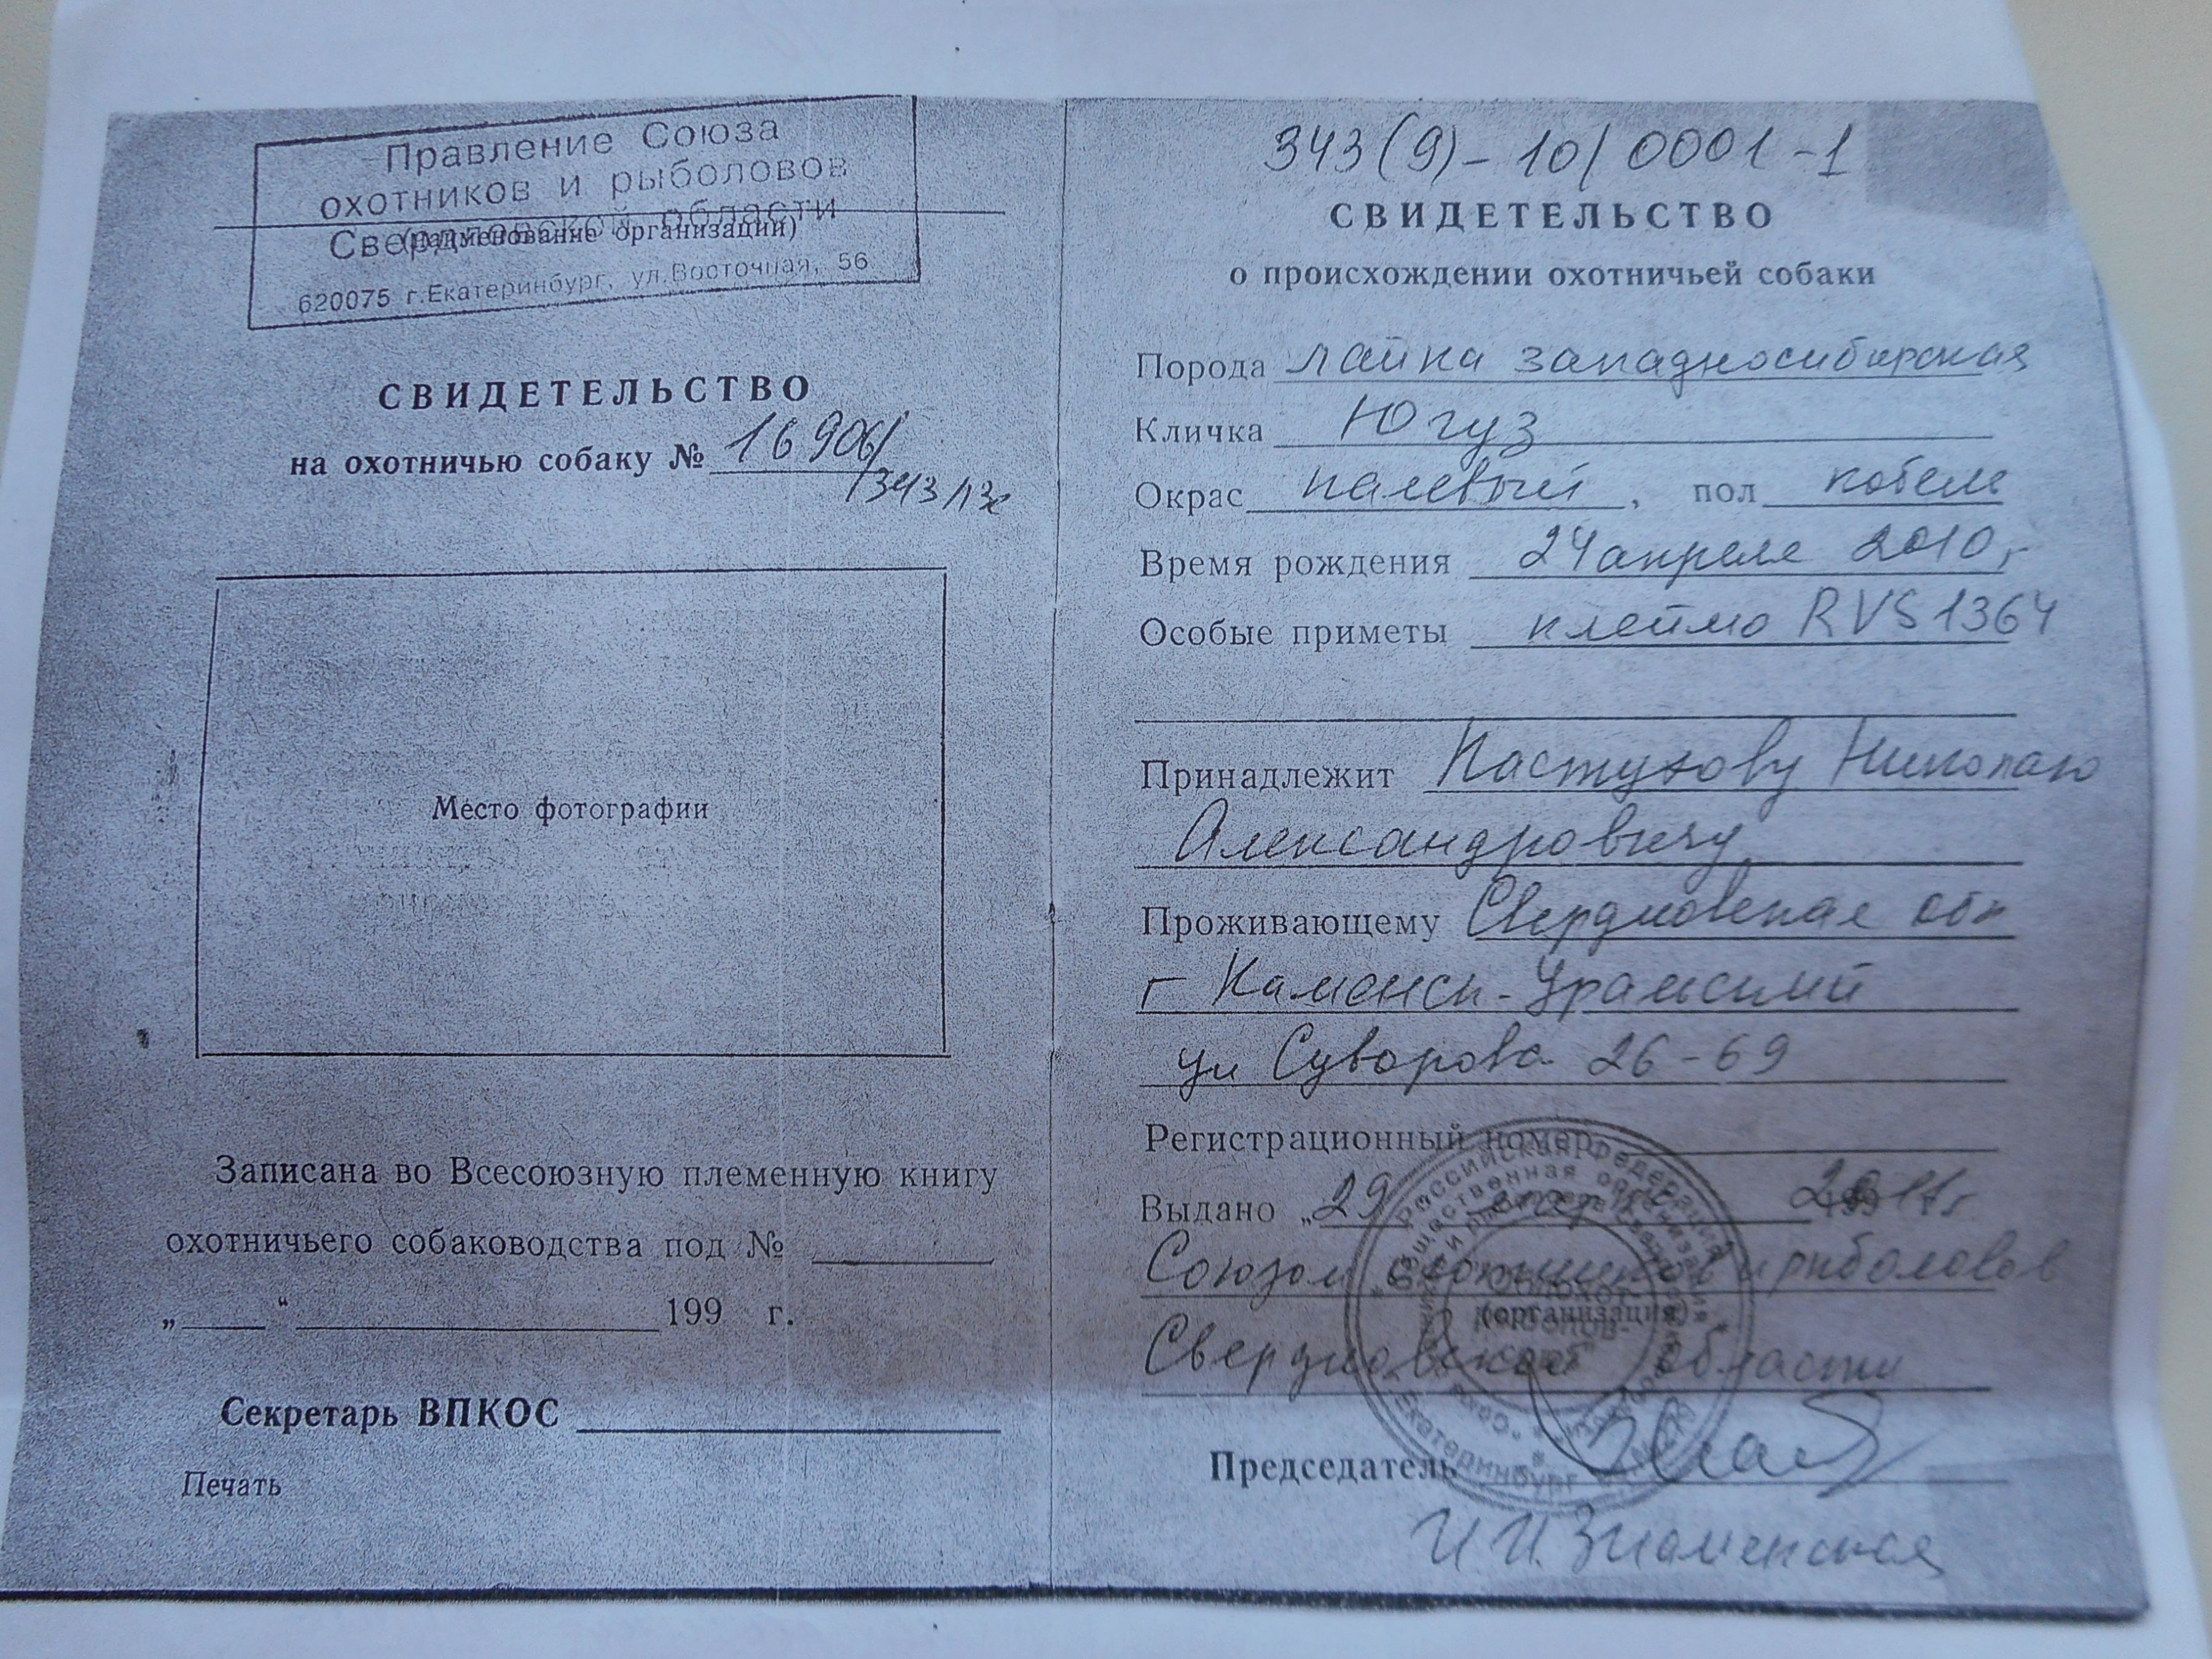 Правление Союза
охотников и рыболовов
Свердловской области
(наименование организации)
620075 г.Екатеринбург, ул.Восточная, 56
СВИДЕТЕЛЬСТВО
на охотничью собаку № 16906/
/343/13г
Место фотографии
Записана во Всесоюзную племенную книгу
охотничьего собаководства под №
„ “ 199 г.
Секретарь ВПКОС
Печать
343(9)-10/0001-1
СВИДЕТЕЛЬСТВО
о происхождении охотничьей собаки
Порода лайка западносибирская
Кличка Югуз
Окрас палевый, пол кобель
Время рождения 24 апреля 2010г
Особые приметы клеймо RVS1364
Принадлежит Пастухову Николаю
Александровичу
Проживающему Свердловская обл
г Каменск-Уральский
ул Суворова 26-69
Регистрационный номер
Выдано „29 2011г
Союзом охотников и рыболовов
(организация)
Свердловской области
Председатель
И.И. Знаменская
Российская Федерация
Екатеринбург